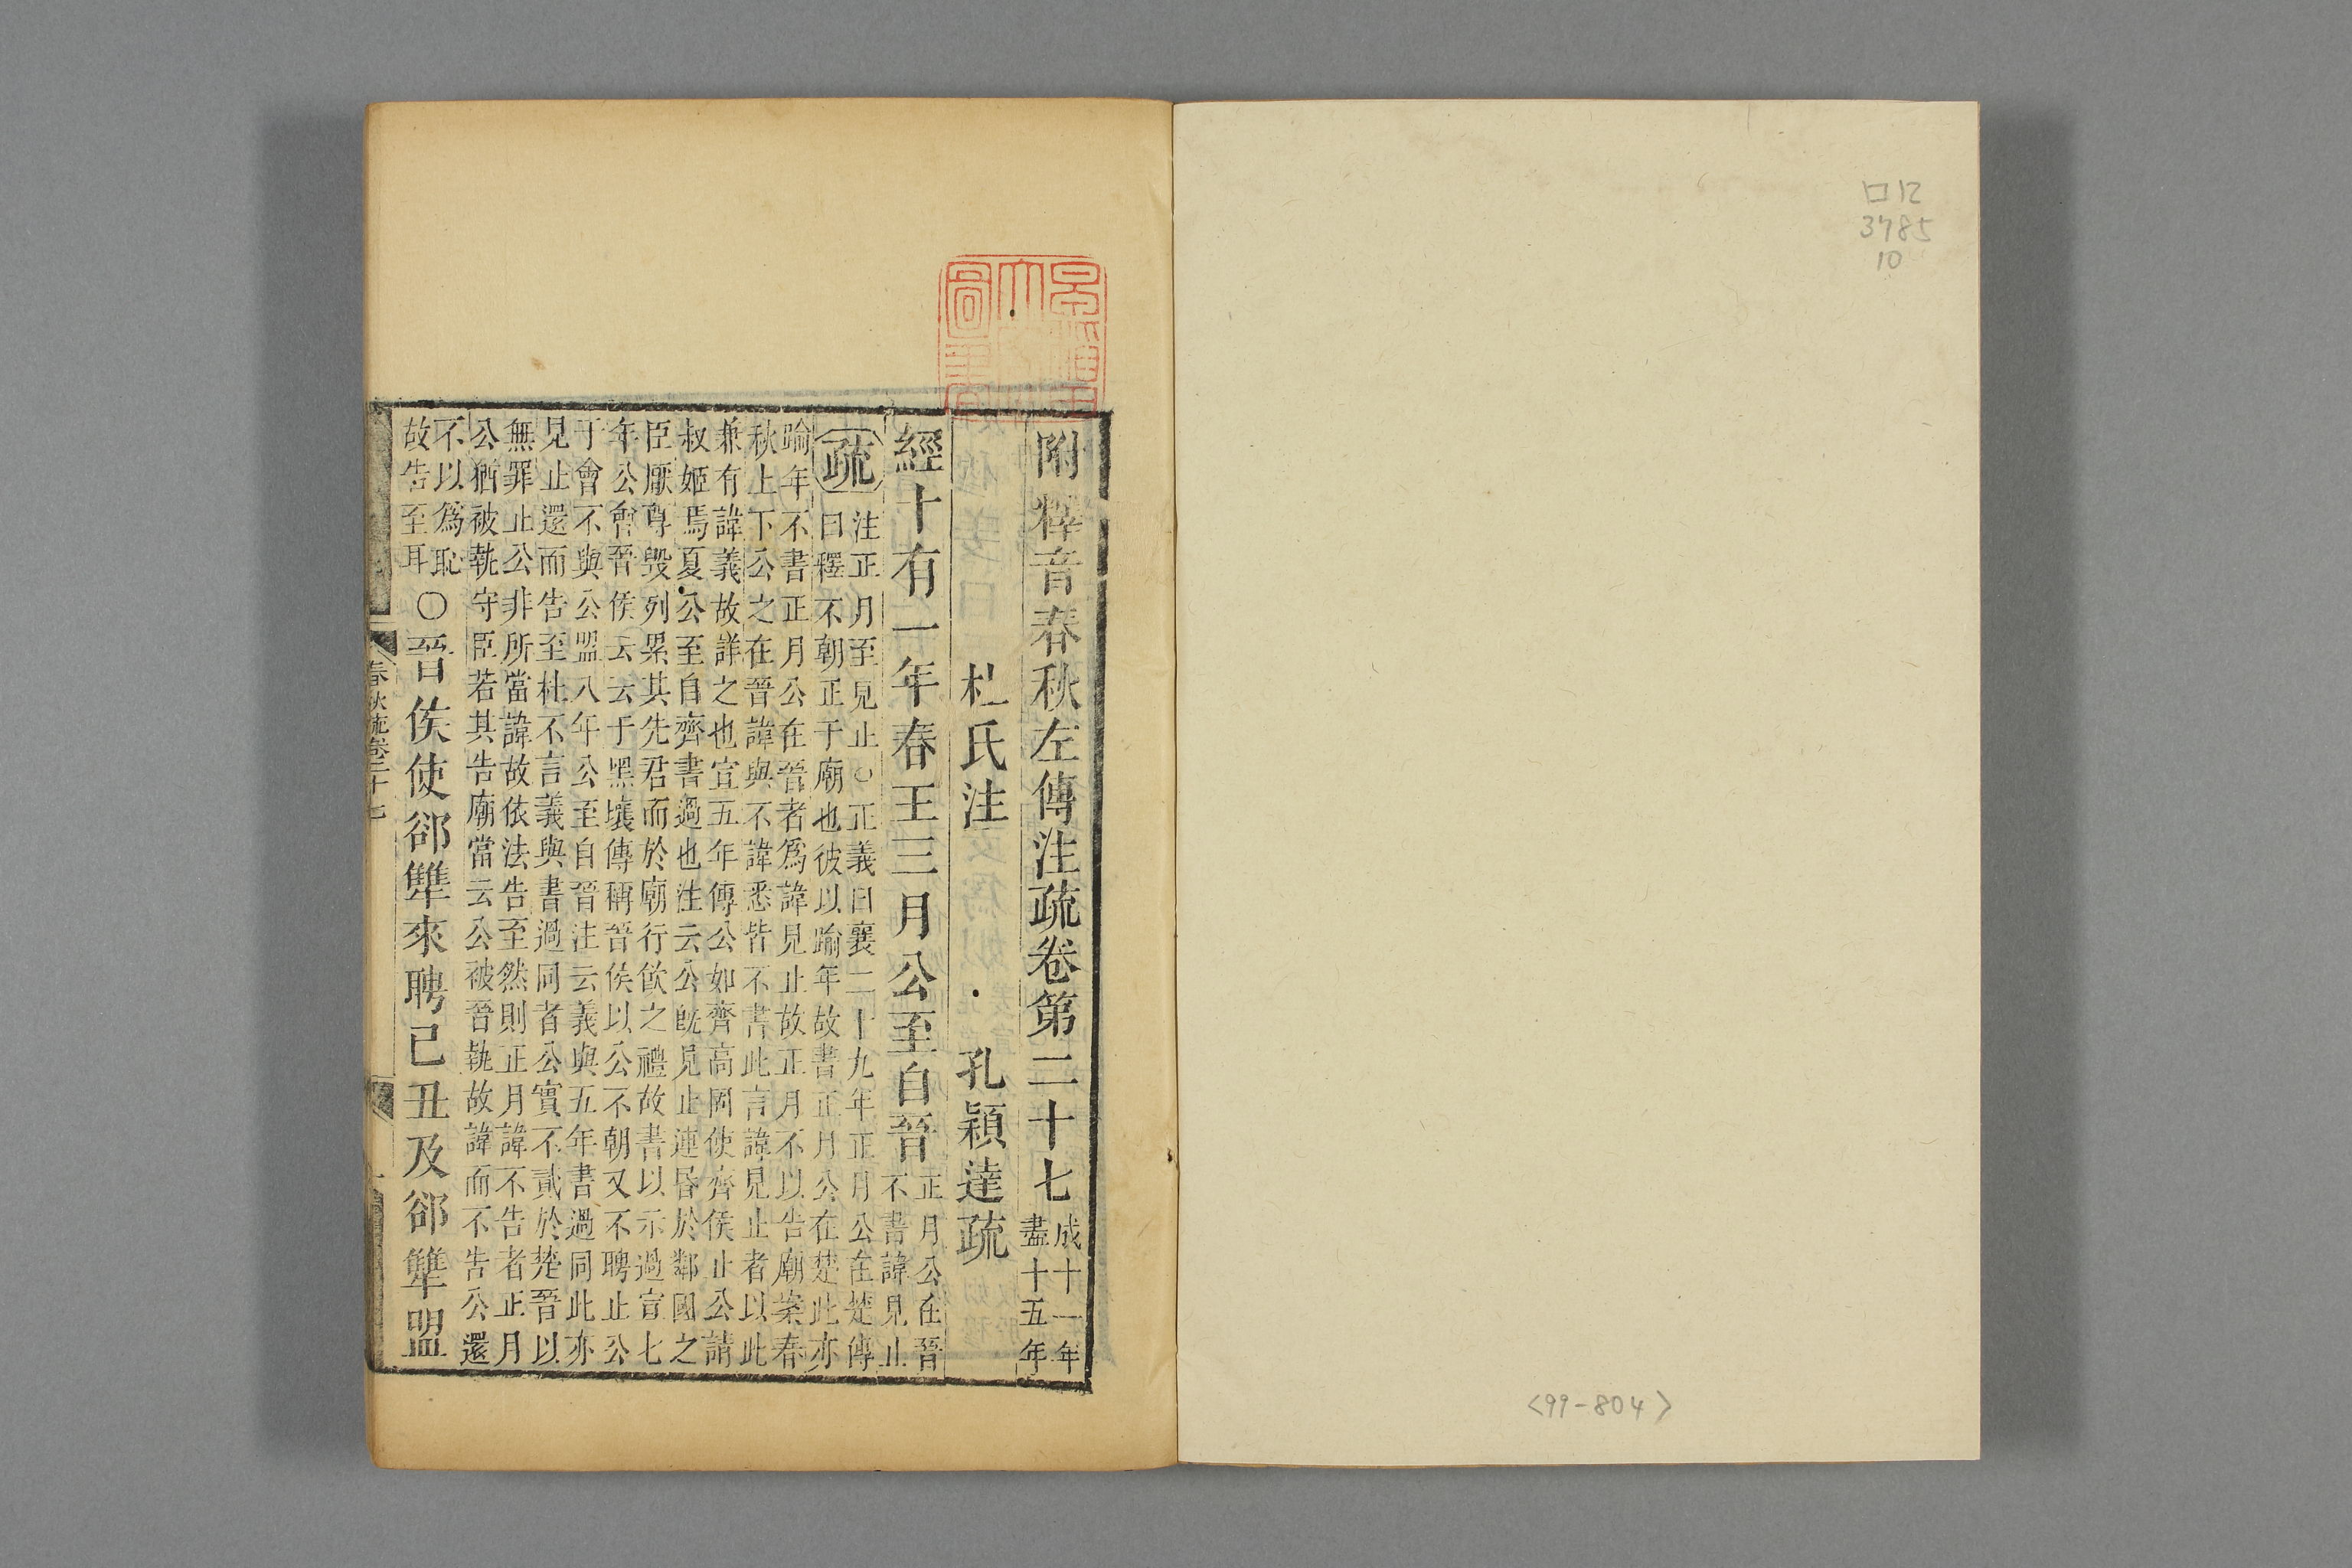 ロ12
3785
10
<99-804>
附釋音春秋左傳注疏卷第二十七
成十一年
盡十五年
杜氏注 孔穎達疏
經十有一年春王三月公至自晉
正月公在晉
不書諱見止
疏
注正月至見止○正義曰襄二十九年正月公在楚傳
曰釋不朝正于廟也彼以踰年故書正月公在楚此亦
踰年不書正月公在晉者爲諱見止故正月不以告廟案春
秋上下公之在晉諱與不諱悉皆不書此言諱見止者以此
兼有諱義故詳之也宣五年傳公如齊高固使齊侯止公請
叔姬焉夏公至自齊書過也注云公既見止連昏於鄰國之
臣厭尊毀列累其先君而於廟行飲之禮故書以示過宣七
年公會晉侯云云于黑壤傳稱晉侯以公不朝又不聘止公
于會不與公盟八年公至自晉注云義與五年書過同此亦
見止還而告至杜不言義與書過同者公實不貳於楚晉以
無罪止公非所當諱故依法告至然則正月諱不告者正月
公猶被執守臣若其告廟當云公被晉執故諱而不告公還
不以爲恥
故告至耳
○晉侯使郤犨來聘己丑及郤犨盟
春秋疏卷二十七